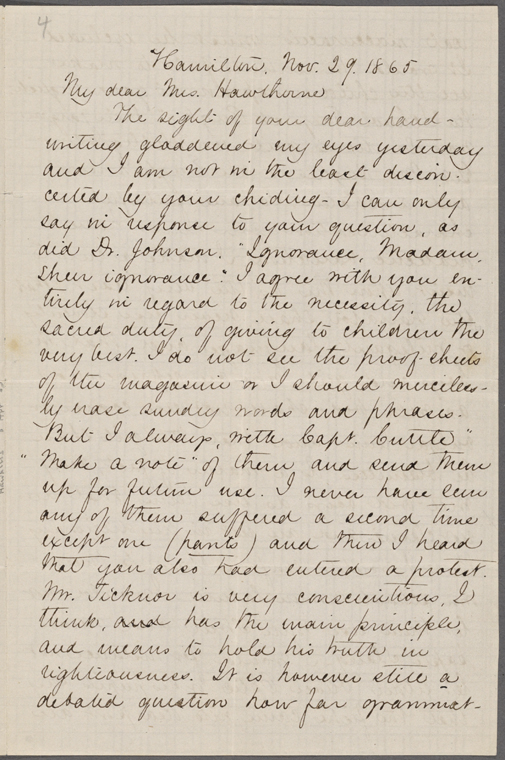 4
Hamilton, Nov. 29. 1865
My dear Mrs. Hawthorne
The sight of your dear hand-
writing gladdened my eyes yesterday
and I am not in the least discon-
certed by your chiding - I can only
say in response to your question, as
did Dr. Johnson. "Ignorance, Madam,
sheer ignorance." I agree with you en-
tirely in regard to the necessity, the
sacred duty, of giving to children the
very best. I do not see the proof-sheets
of the magazine or I should merciless-
ly erase sundry words and phrases.
But I always, with Capt. Cuttle "
"make a note" of them and send them
up for future use. I never have seen
any of them suffered a second time
except one (pants) and then I heard
that you also had entered a protest.
Mr. Ticknor is very conscientious, I
think, and has the main principle,
and means to hold his truth in
righteousness. It is however still a
debated question how far grammat-